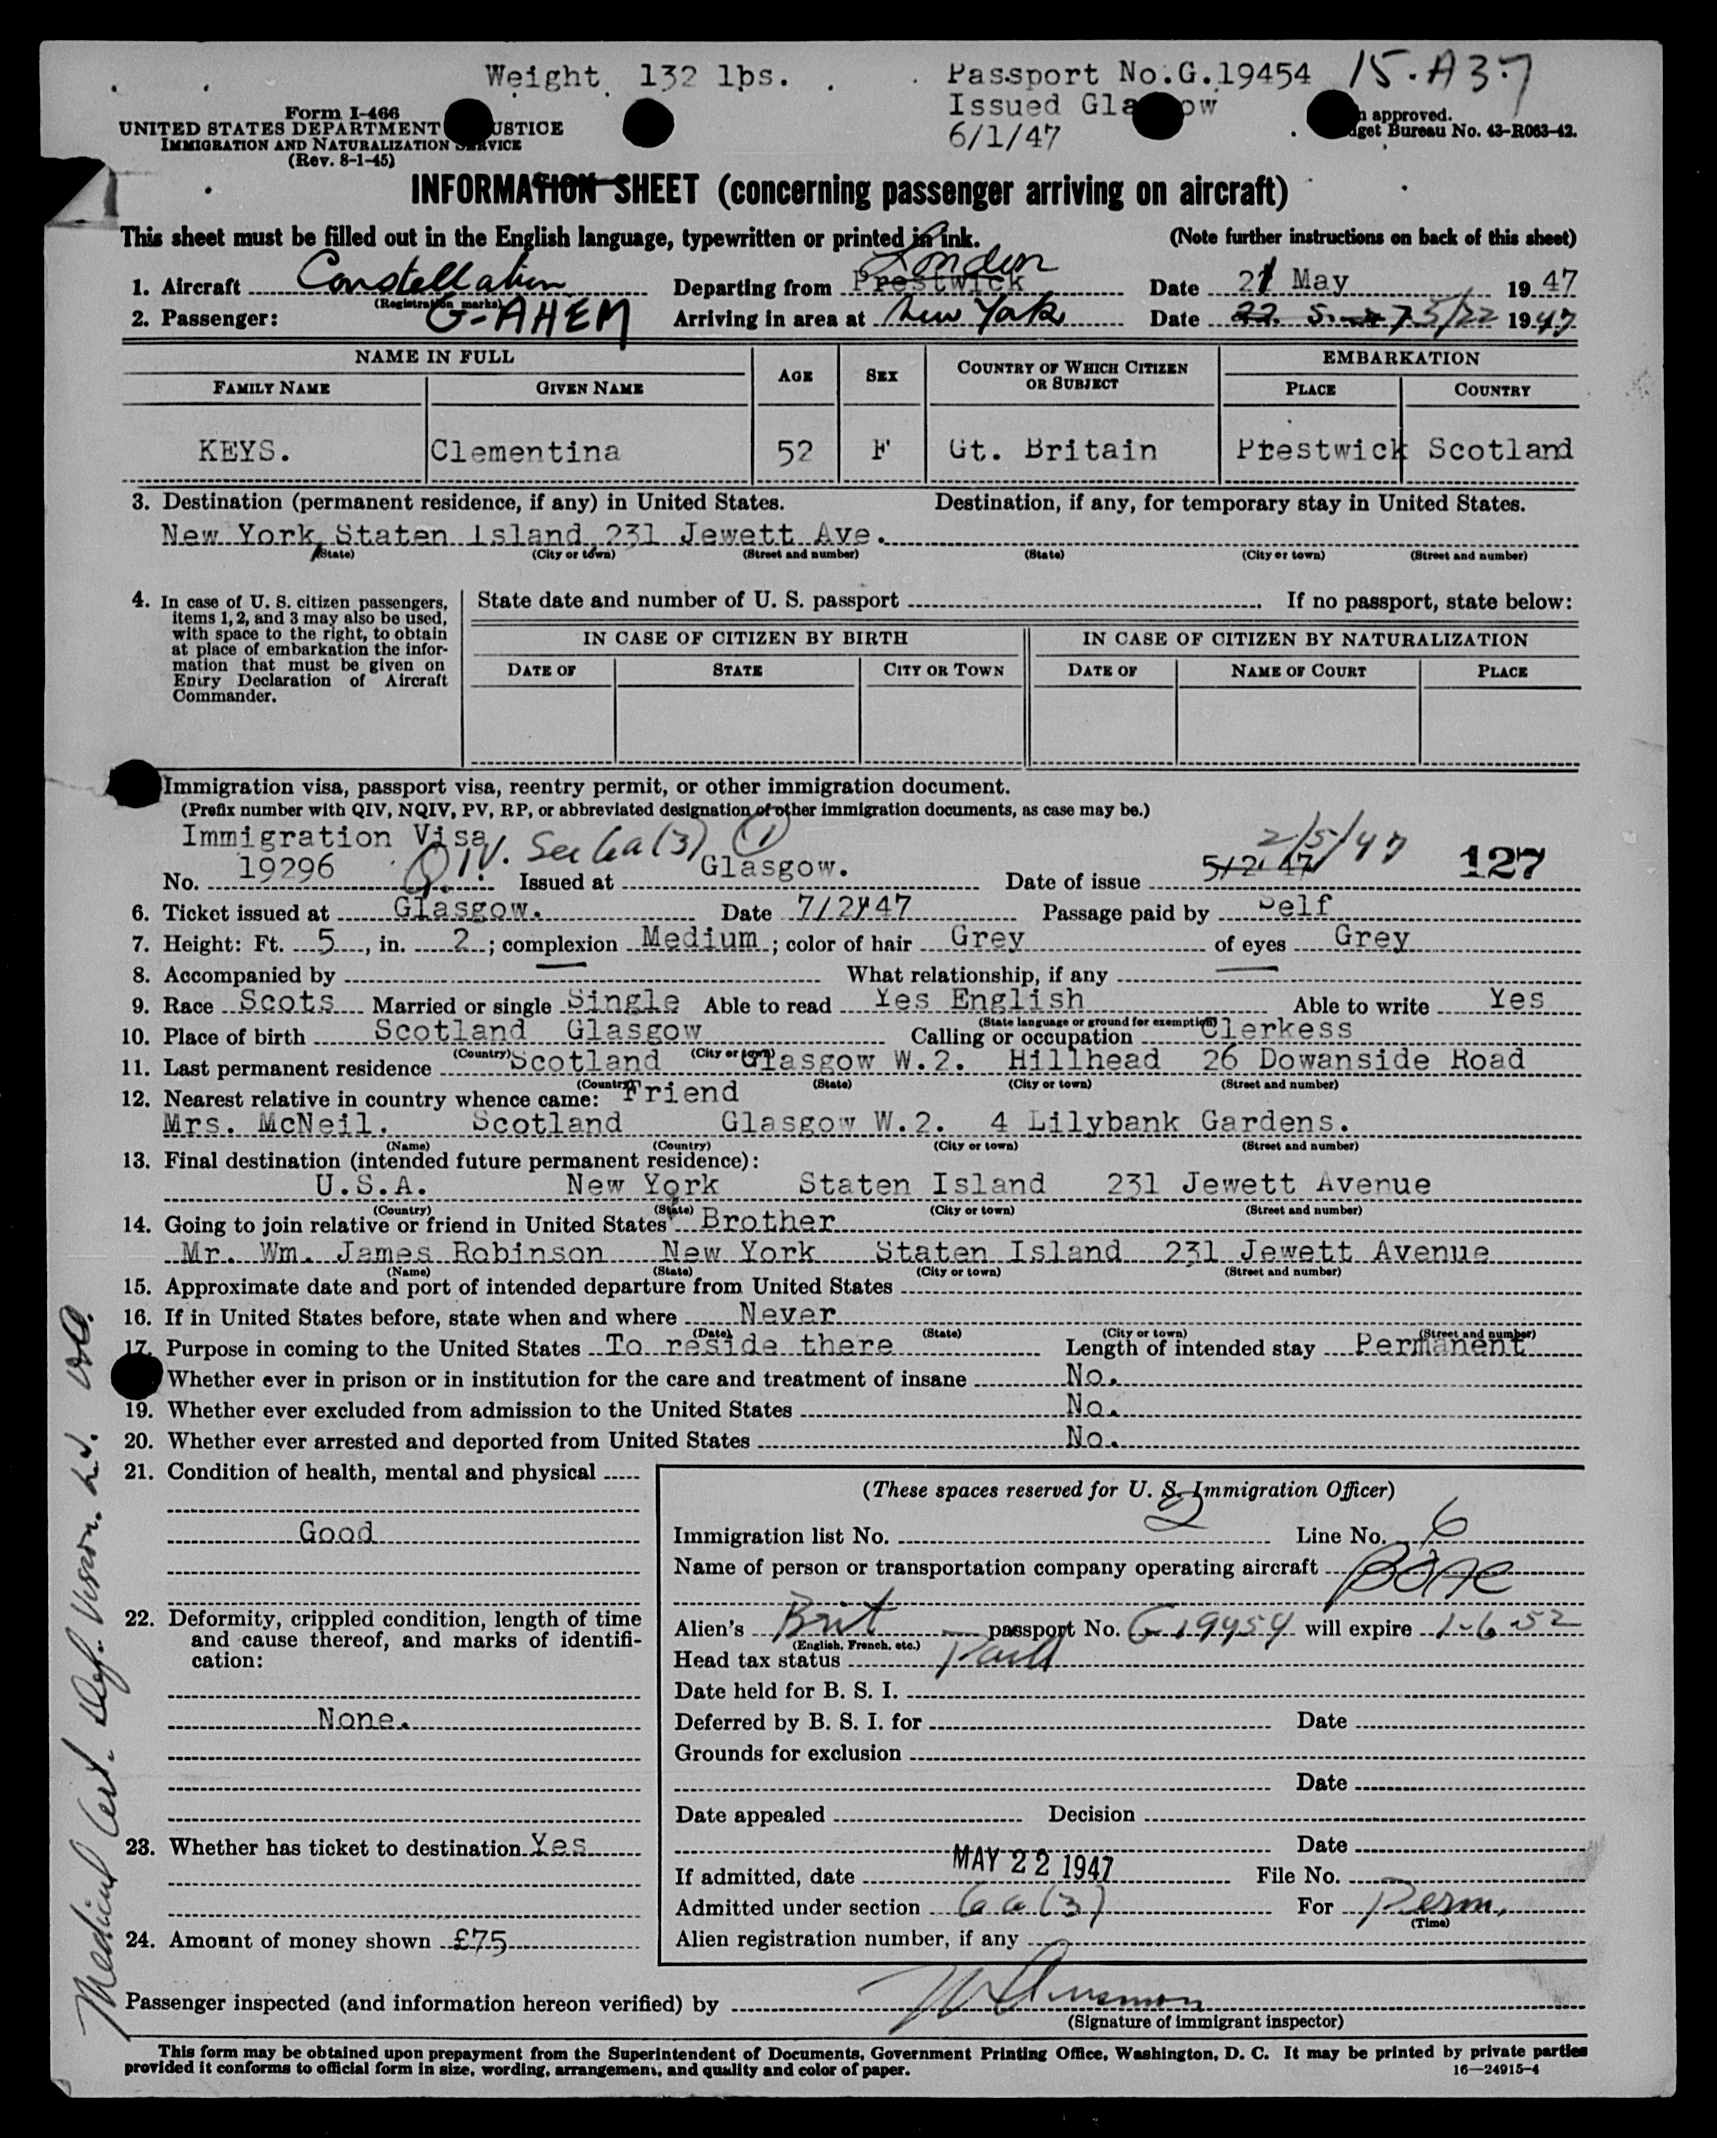 Weight 132 lbs. Passport No.G.19454 15.A37
Issued Gla ow
6/1/47
Form I-466
UNITED STATES DEPARTMENT USTICE
IMMIGRATION AND NATURALIZATION SERVICE
(Rev. 8-1-45)
approved.
get Bureau No. 43-R063-42.
INFORMATION SHEET (concerning passenger arriving on aircraft)
This sheet must be filled out in the English language, typewritten or printed in ink. (Note further instructions on back of this sheet)
London
1. Aircraft Constellation Departing from Prestwick Date 21 May 1947
(Registration marks)
2. Passenger: G-AHEM Arriving in area at New York Date 22 5 47 5/22 1947
NAME IN FULL AGE SEX COUNTRY OF WHICH CITIZEN OR SUBJECT EMBARKATION
FAMILY NAME GIVEN NAME PLACE COUNTRY
KEYS. Clementina 52 F Gt. Britain Prestwick Scotland
3. Destination (permanent residence, if any) in United States. Destination, if any, for temporary stay in United States.
New York, Staten Island 231 Jewett Ave.
(State) (City or town) (Street and number) (State) (City or town) (Street and number)
4. In case of U. S. citizen passengers,
items 1, 2, and 3 may also be used,
with space to the right, to obtain
at place of embarkation the infor-
mation that must be given on
Entry Declaration of Aircraft
Commander.
State date and number of U. S. passport If no passport, state below:
IN CASE OF CITIZEN BY BIRTH IN CASE OF CITIZEN BY NATURALIZATION
DATE OF STATE CITY OR TOWN DATE OF NAME OF COURT PLACE
Immigration visa, passport visa, reentry permit, or other immigration document.
(Prefix number with QIV, NQIV, PV, RP, or abbreviated designation of other immigration documents, as case may be.)
Immigration Visa Q.I.V. Sec 6a(3) (1) 2/5/47
No. 19296 Issued at Glasgow. Date of issue 5/2/47 127
6. Ticket issued at Glasgow. Date 7/2/47 Passage paid by Self
7. Height: Ft. 5, in. 2; complexion Medium; color of hair Grey of eyes Grey
8. Accompanied by — What relationship, if any —
9. Race Scots Married or single Single Able to read Yes English Able to write Yes
(State language or ground for exemption)
10. Place of birth Scotland Glasgow Calling or occupation Clerkess
(Country) (City or town)
11. Last permanent residence Scotland Glasgow W.2. Hillhead 26 Dowanside Road
(Country) (State) (City or town) (Street and number)
12. Nearest relative in country whence came: Friend
Mrs. McNeil. Scotland Glasgow W.2. 4 Lilybank Gardens.
(Name) (Country) (City or town) (Street and number)
13. Final destination (intended future permanent residence):
U.S.A. New York Staten Island 231 Jewett Avenue
(Country) (State) (City or town) (Street and number)
14. Going to join relative or friend in United States Brother
Mr. Wm. James Robinson New York Staten Island 231 Jewett Avenue
(Name) (State) (City or town) (Street and number)
15. Approximate date and port of intended departure from United States
16. If in United States before, state when and where Never
(Date) (State) (City or town) (Street and number)
17. Purpose in coming to the United States To reside there Length of intended stay Permanent
Whether ever in prison or in institution for the care and treatment of insane No.
19. Whether ever excluded from admission to the United States No.
20. Whether ever arrested and deported from United States No.
21. Condition of health, mental and physical
Good
22. Deformity, crippled condition, length of time
and cause thereof, and marks of identifi-
cation:
None.
23. Whether has ticket to destination Yes
24. Amount of money shown £75
(These spaces reserved for U. S. Immigration Officer)
Immigration list No. 2 Line No. 6
Name of person or transportation company operating aircraft BOAC
Alien's Brit passport No. G 19454 will expire 1-6-52
(English, French, etc.)
Head tax status Paid
Date held for B. S. I.
Deferred by B. S. I. for Date
Grounds for exclusion
Date
Date appealed Decision
Date
If admitted, date MAY 22 1947 File No.
Admitted under section 6a(3) For Perm.
(Time)
Alien registration number, if any
Passenger inspected (and information hereon verified) by
(Signature of immigrant inspector)
This form may be obtained upon prepayment from the Superintendent of Documents, Government Printing Office, Washington, D. C. It may be printed by private parties
provided it conforms to official form in size, wording, arrangement, and quality and color of paper. 16—24915-4
Medical Cert. Def. Vision.